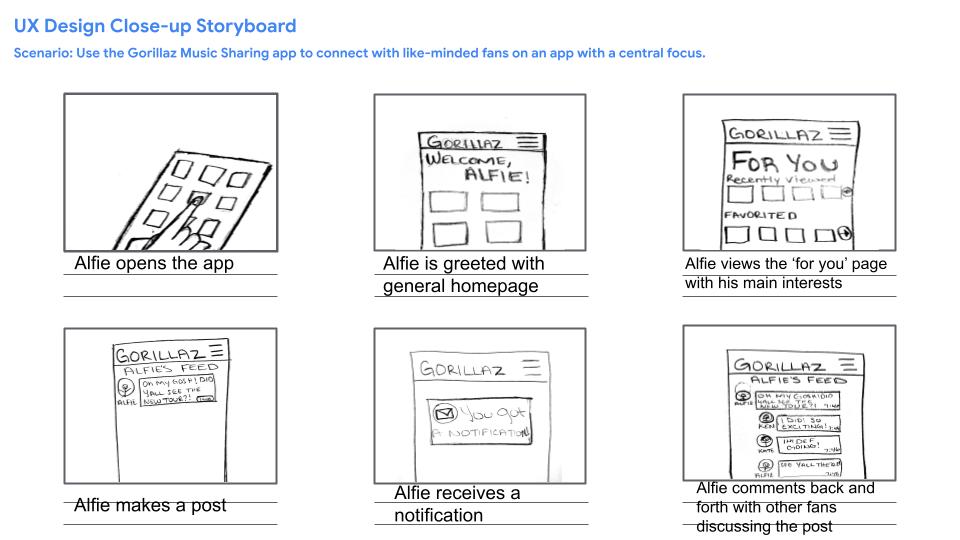 UX Design Close-up Storyboard
Scenario: Use the Gorillaz Music Sharing app to connect with like-minded fans on an app with a central focus.
Alfie opens the app
GORILLAZ
WELCOME,
ALFIE!
Alfie is greeted with
general homepage
GORILLAZ
FOR YOU
Recently Viewed
FAVORITED
Alfie views the ‘for you’ page
with his main interests
GORILLAZ
ALFIE'S FEED
OH MY GOSH, DID
YALL SEE THE
NEW TOUR?!
ALFIE
Alfie makes a post
GORILLAZ
You got
A NOTIFICATION!
Alfie receives a
notification
GORILLAZ
ALFIE'S FEED
OH MY GOSH DID
YALL SEE THE
NEW TOUR?!
ALFIE
I DID! SO
EXCITING!
KEN
I'M DEF
GOING!
KATE
DID YALL
ALFIE
Alfie comments back and
forth with other fans
discussing the post